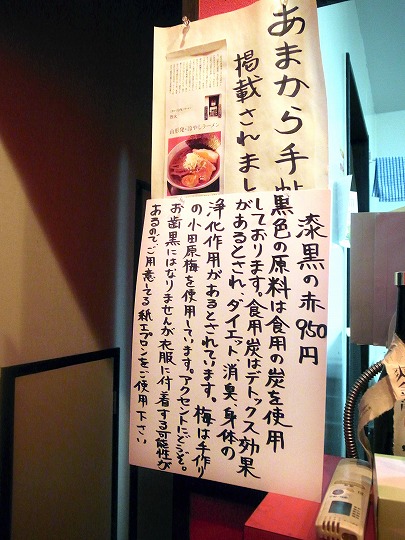 あまから手帖
掲載されまし
漆黒の赤 950円
黒色の原料は食用の炭を使用
しております。食用炭はデトックス効果
があるとされ、ダイエット 消臭 身体の
浄化作用があるとされています。梅は手作り
の小田原梅を使用しています。アクセントにどうぞ。
お歯黒にはなりませんが衣服に付着する可能性が
あるので、ご用意してる紙エプロンをご使用下さい